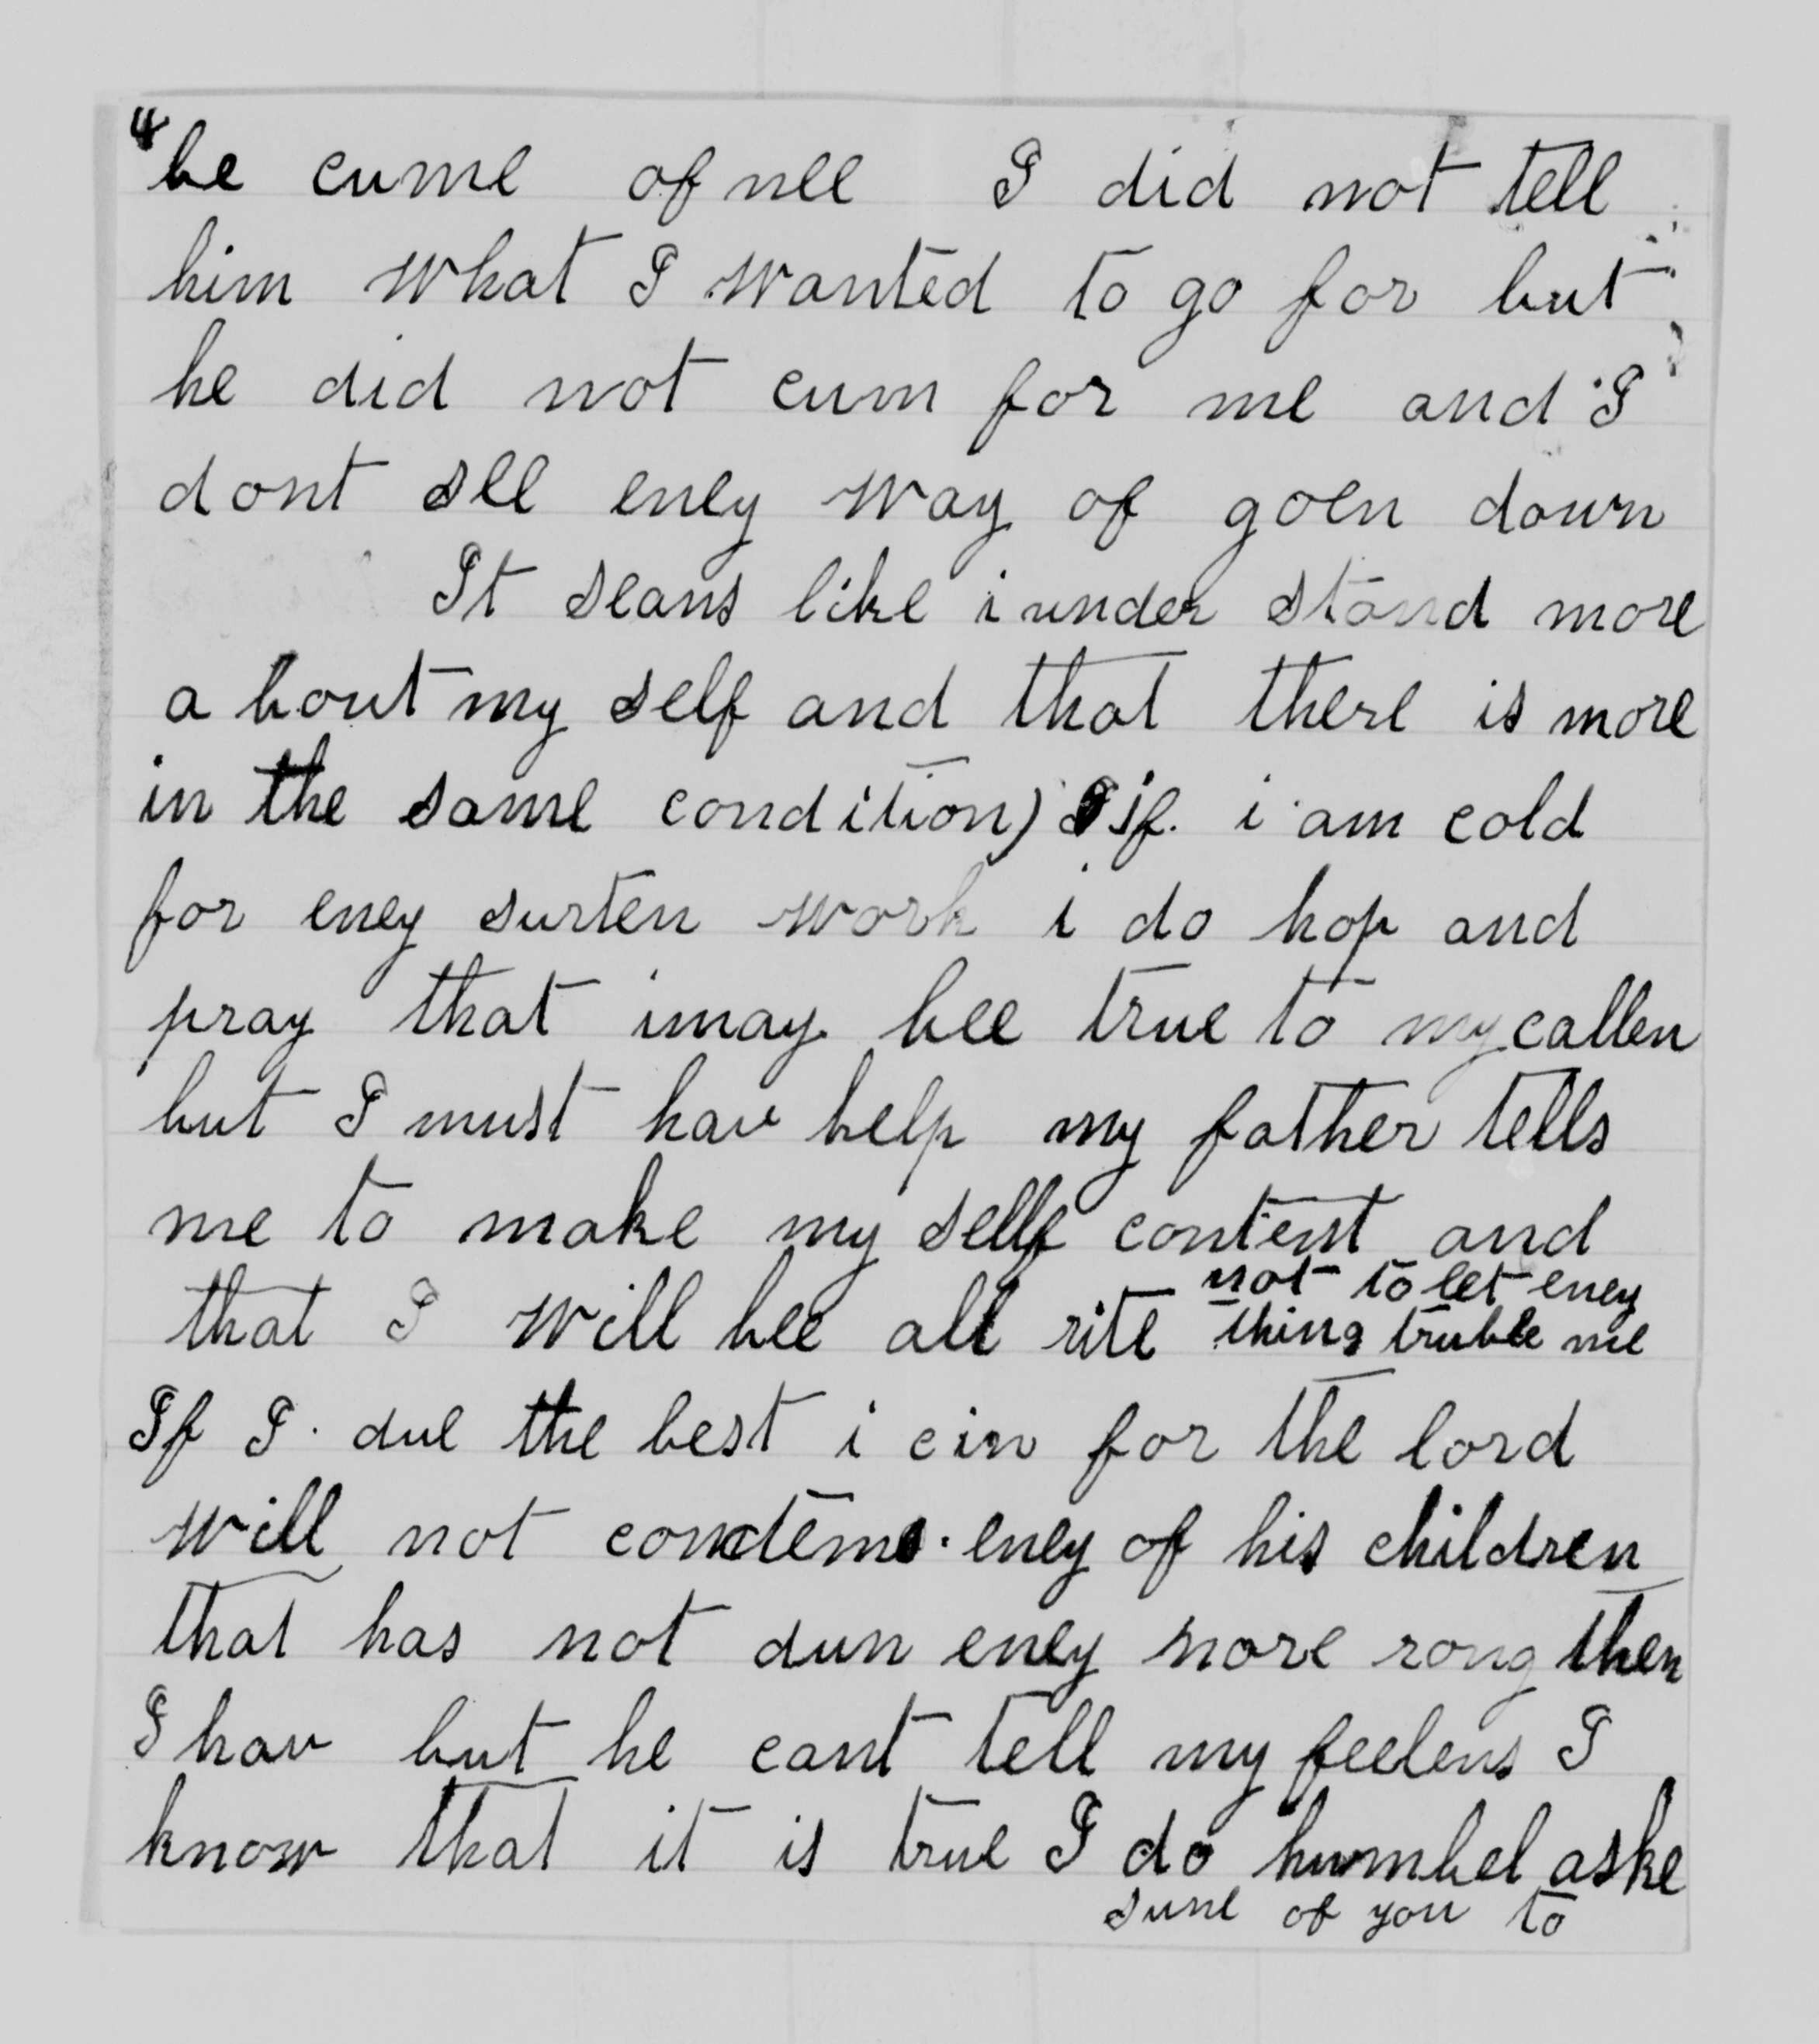 4
be cume of mee I did not tell
him what I wanted to go for but
he did not cum for me and I
dont see eney way of goen down
It seans like i under stand more
a bout my self and that there is more
in the same condition) if i am cold
for eney surten work i do hop and
pray that imay bee true to my callen
but I must hav help my father tells
me to make my sellf content and
that I will bee all rite not to let eney
thing truble me
If I due the best i cin for the lord
will not condem eney of his children
that has not dun eney more rong then
I hav but he cant tell my feelens I
know that it is true I do humbel aske
sume of you to